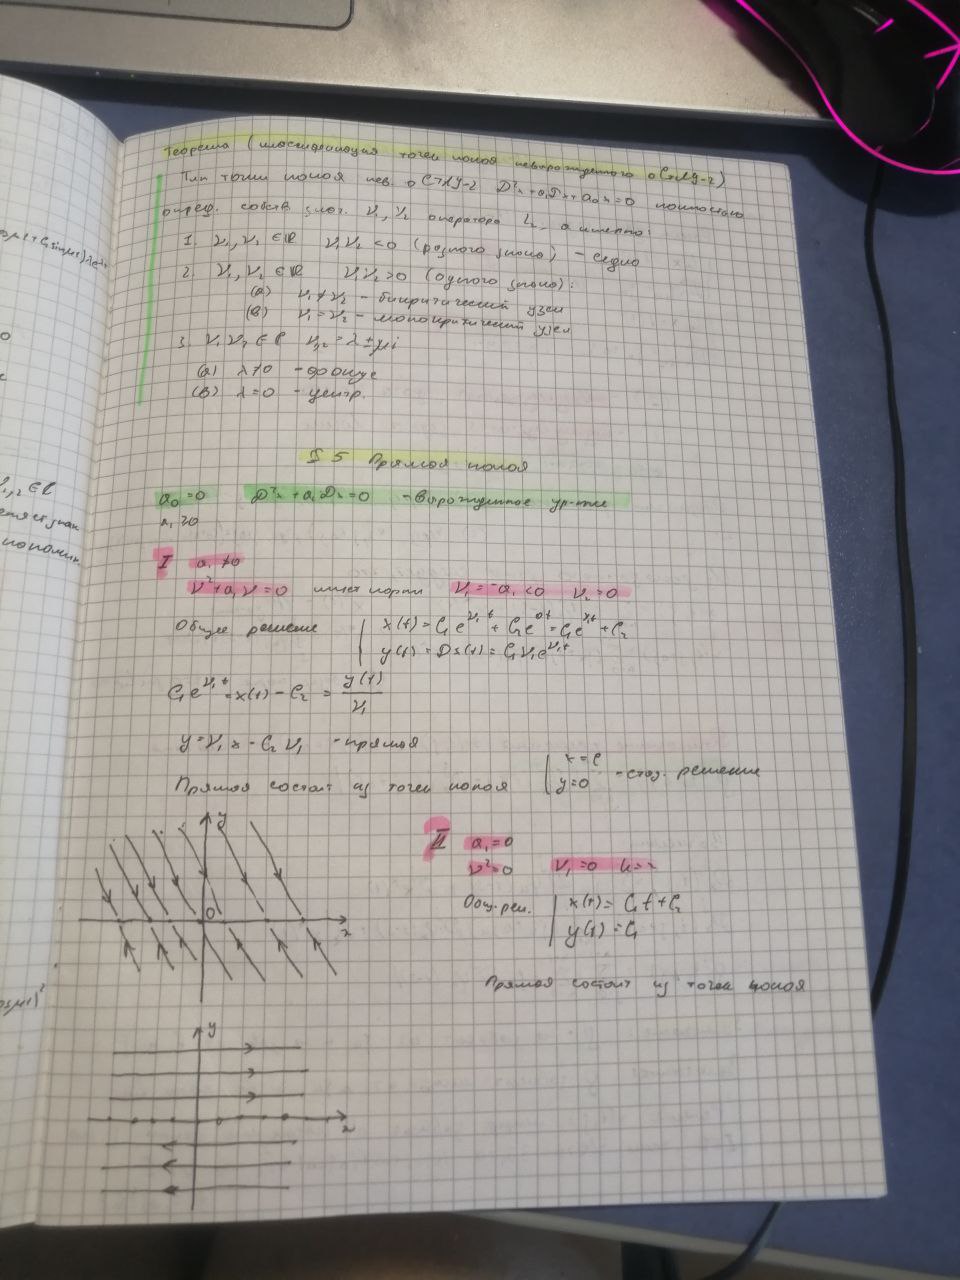 Теорема (классификация точек покоя невырожденного оСтЛУ-2)
Тип точки покоя нев. оСтЛУ-2 D²x + a₁Dx + a₀x = 0 полностью
опред. собств. знач. ν₁, ν₂ оператора L₂, а именно:
1. ν₁, ν₂ ∈ ℝ ν₁ν₂ < 0 (разного знака) - седло
2. ν₁, ν₂ ∈ ℝ ν₁ν₂ > 0 (одного знака):
(а) ν₁ ≠ ν₂ - бикритический узел
(в) ν₁ = ν₂ - монокритический узел
3. ν₁, ν₂ ∈ ℂ ν₁,₂ = λ ± μi
(а) λ ≠ 0 - фокус
(в) λ = 0 - центр.
§ 5 Прямая покоя
a₀ = 0 D²x + a₁Dx = 0 - вырожденное ур-ние
a₁ ≥ 0
I a₁ ≠ 0
ν² + a₁ν = 0 имеет корни ν₁ = -a₁ < 0 ν₂ = 0
Общее решение x(t) = C₁e^{ν₁t} + C₂e^{0t} = C₁e^{ν₁t} + C₂
y(t) = Dx(t) = C₁ν₁e^{ν₁t}
C₁e^{ν₁t} = x(t) - C₂ = y(t)/ν₁
y = ν₁x - C₂ν₁ - прямая
Прямая состоит из точек покоя x = C
y = 0 - стац. решение
y
O
x
II a₁ = 0
ν² = 0 ν₁ = 0
Общ. реш. x(t) = C₁t + C₂
y(t) = C₁
Прямая состоит из точек покоя
y
x